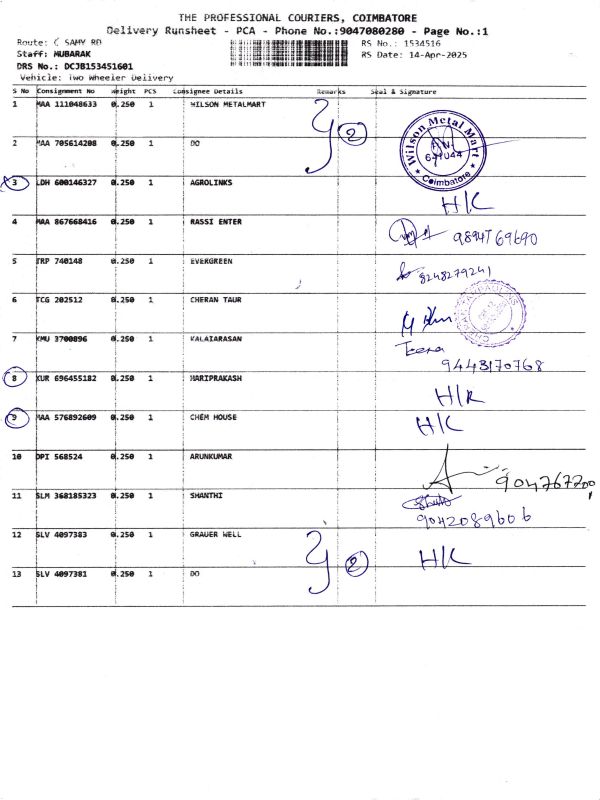 THE PROFESSIONAL COURIERS, COIMBATORE
Delivery Runsheet - PCA - Phone No.:9047080280 - Page No.:1
Route: C SAMY RD
RS No.: 1534516
Staff: MUBARAK
RS Date: 14-Apr-2025
DRS No.: DCJB153451601
Vehicle: Two Wheeler Delivery
S No Consignment No Weight PCS Consignee Details Remarks Seal & Signature
1 MAA 111048633 0.250 1 WILSON METALMART
2
Wilson Metal Mart
Coimbatore
2 MAA 705614208 0.250 1 DO
3 LDH 600146327 0.250 1 AGROLINKS
H/C
4 MAA 867668416 0.250 1 RASSI ENTER
9894769690
5 TRP 740148 0.250 1 EVERGREEN
8248279241
6 TCG 202512 0.250 1 CHERAN TAUR
7 KMU 3700896 0.250 1 KALAIARASAN
9443170768
8 KUR 696455182 0.250 1 HARIPRAKASH
9 MAA 576892609 0.250 1 CHEM HOUSE
H/C
10 OPI 568524 0.250 1 ARUNKUMAR
11 SLM 368185323 0.250 1 SHANTHI
9042089606
12 SLV 4097383 0.250 1 GRAUER WELL
2
13 SLV 4097381 0.250 1 DO